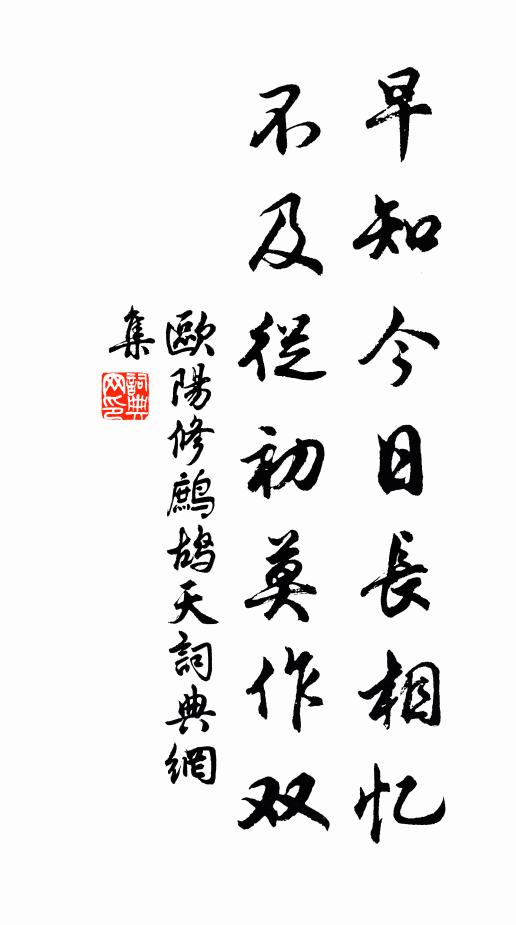 早知今日長相忆
不及從初莫作双
歐陽修鷓鴣天詞典網
集
詞典网印